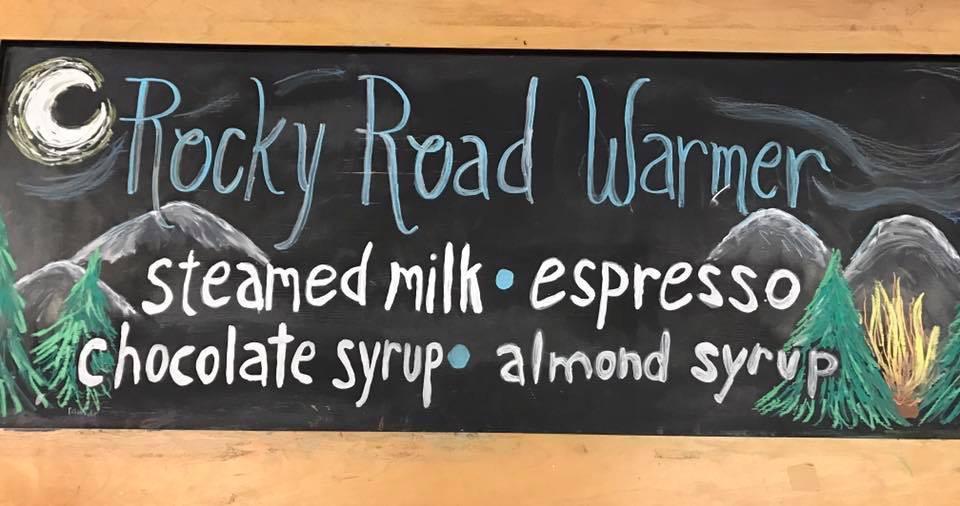 Rocky Road Warmer
steamed milk • espresso
chocolate syrup • almond syrup